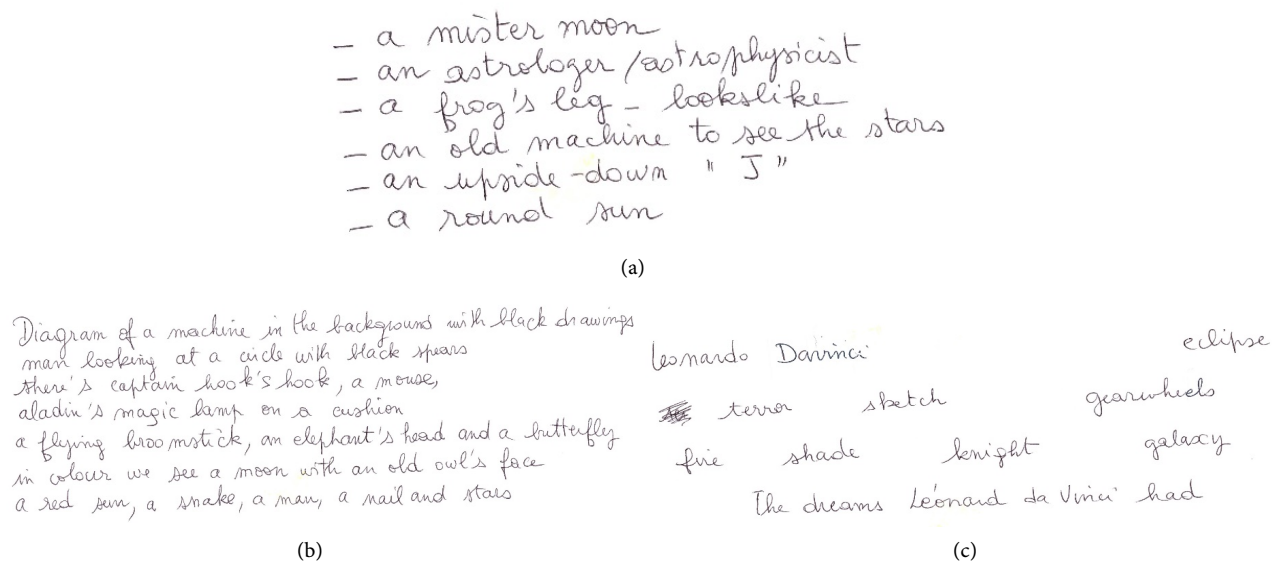 – a mister moon
– an astrologer /astrophysicist
– a frog's leg – lookslike
– an old machine to see the stars
– an upside-down " J "
– a round sun
(a)
Diagram of a machine in the background with black drawings
man looking at a circle with black spears
there's captain hook's hook, a mouse,
aladin's magic lamp on a cushion
a flying broomstick, an elephant's head and a butterfly
in colour we see a moon with an old owl's face
a red sun, a snake, a man, a nail and stars
(b)
leonardo Davinci eclipse
terror sketch gearwheels
fire shade knight galaxy
The dreams Léonard da Vinci had
(c)